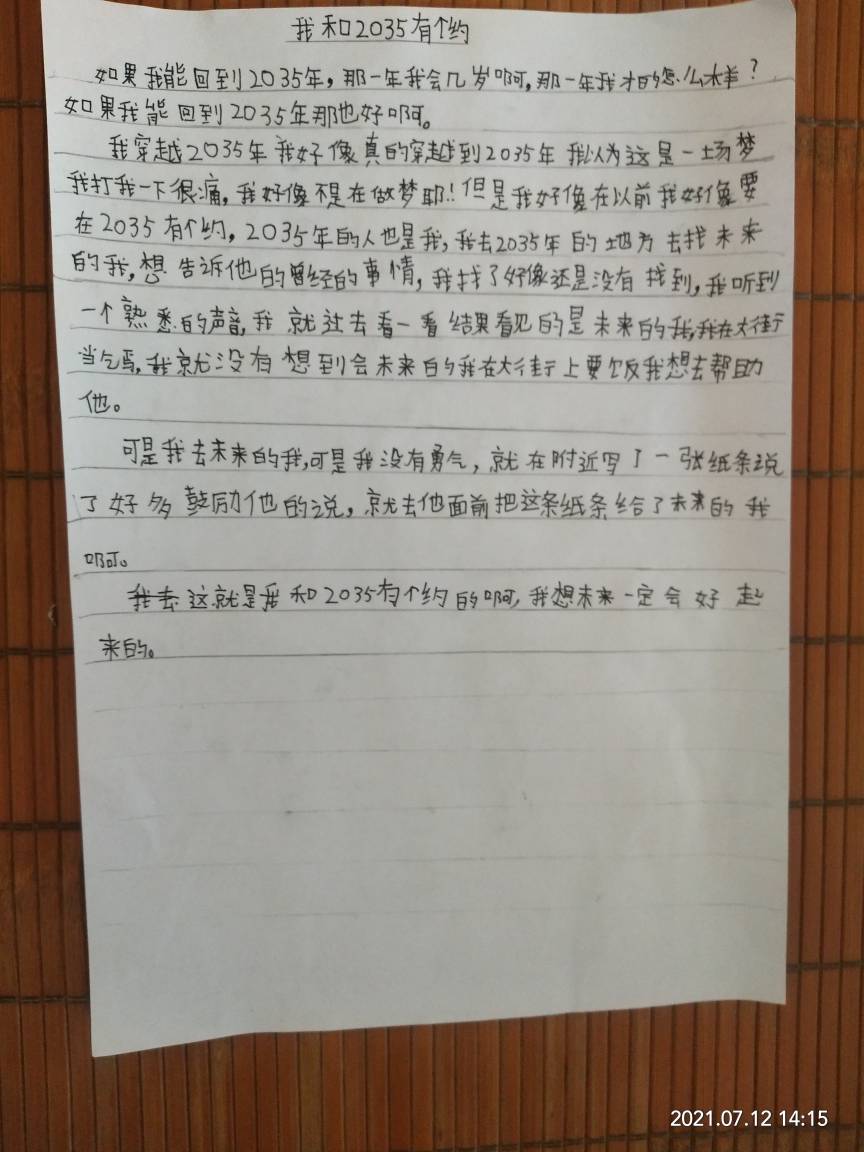 我和2035有个约
如果我能回到2035年，那一年我会几岁啊，那一年我才的怎么样？
如果我能回到2035年那也好啊。
我穿越2035年我好像真的穿越到2035年我以为这是一场梦
我打我一下很痛，我好像不是在做梦耶!!但是我好像在以前我好像要
在2035有个约，2035年的人也是我，我去2035年的地方去找未来
的我，想告诉他的曾经的事情，我找了好像还是没有找到，我听到
一个熟悉的声音，我就过去看一看结果看见的是未来的我，我在大街
当乞丐，我就没有想到会未来的我在大街上要饭我想去帮助
他。
可是我去未来的我，可是我没有勇气，就在附近写了一张纸条说
了好多鼓励他的说，就去他面前把这条纸条给了未来的我
啊。
我去这就是我和2035有个约的啊，我想未来一定会好起
来的。
2021.07.12 14:15